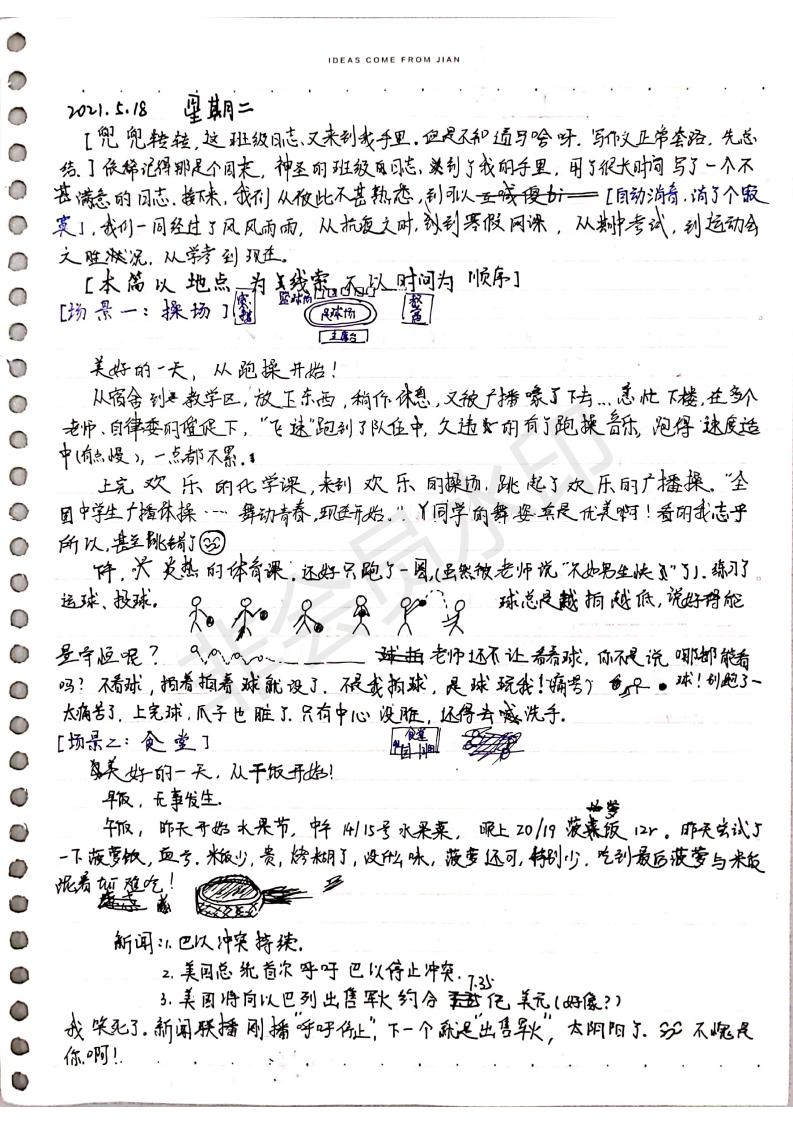 IDEAS COME FROM JIAN
2021.5.18 星期二
[兜兜转转,这班级日志又来到我手里。但是不知道写啥呀。写作文正常套路,先总
结。]依稀记得那是个周末,神圣的班级日志,来到了我的手里,用了很长时间写了一个不
甚满意的日志。接下来,我们从彼此不甚熟悉,到可以 [自动消音,消了个寂
寞],我们一同经过了风风雨雨,从抗疫之时,到寒假网课,从期中考试,到运动会
之胜状况,从学考到现在。
[本篇以地点为线索 不以时间为顺序]
[场景一:操场] 实验楼 篮球场 足球场 主席台 教学
美好的一天,从跑操开始!
从宿舍到教学区,放下东西,稍作休息,又被广播嚎了下去…急忙下楼,在多个
老师、自律委的催促下,“飞速”跑到了队伍中,久违的有了跑操音乐,跑得速度适
中(有点慢),一点都不累。
上完欢乐的化学课,来到欢乐的操场,跳起了欢乐的广播操。“全
国中学生广播体操……舞动青春,现在开始。”丫同学的舞姿真是优美啊!看的我忘乎
所以,甚至跳错了
下午,炎热的体育课,还好只跑了一圈,(虽然被老师说“不如男生快”了)。练习了
运球、投球。 球总是越拍越低,说好的能
量守恒呢? 老师还不让看着球,你不是说哪都能看
吗?不看球,拍着拍着球就没了。不是我拍球,是球玩我!痛苦 球!别跑了—
太痛苦了。上完球,爪子也脏了。只有中心没脏,还得去洗手。
[场景之:食堂] 食堂
美好的一天,从干饭开始!
早饭,无事发生。
午饭,昨天开始水果节,中午14/15号水果菜,晚上20/19菠萝饭 12r。昨天尝试了
一下菠萝饭,血亏。米饭少,贵,烤糊了,没什么味,菠萝还可,特别少,吃到最后菠萝与米饭
混着 难吃!
新闻:1. 巴以冲突持续。
2. 美国总统首次呼吁巴以停止冲突。
3. 美国将向以色列出售军火约合 7.35 亿美元(好像?)
我笑死了。新闻联播刚播“呼吁停止”,下一个就是“出售军火”,太阴阳了。不愧是
你啊!
非会员水印